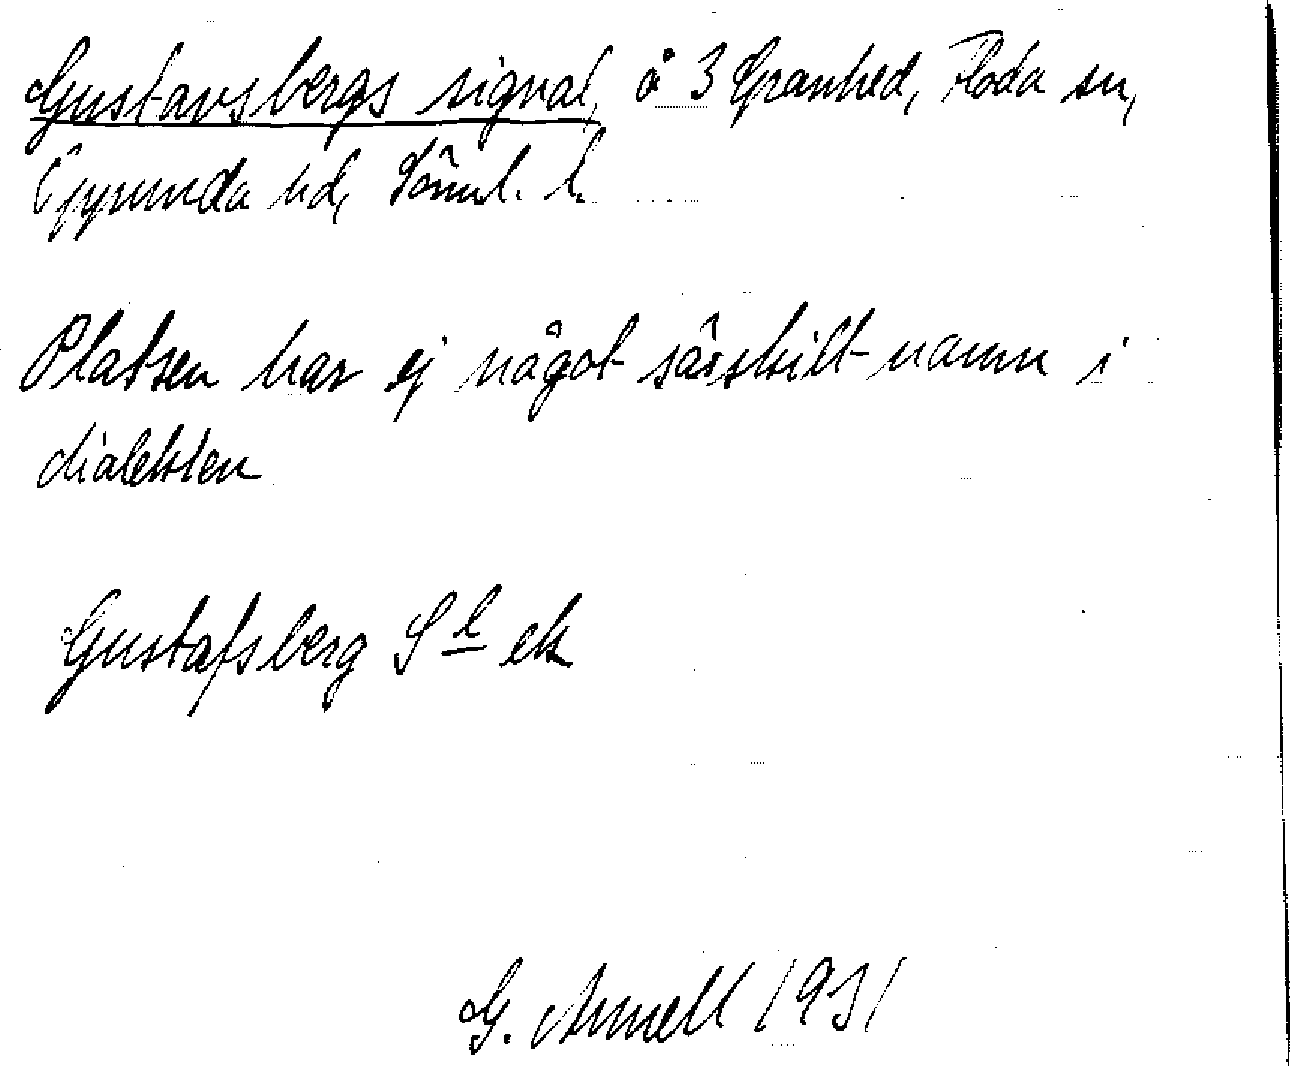 Gustavsbergs signal, å 3 Granhed, Floda sn,
Oppunda hd, Söml. l.
Platsen har ej något särskilt namn i
dialekten
Gustafsberg S l ek
G. Arnell 1931